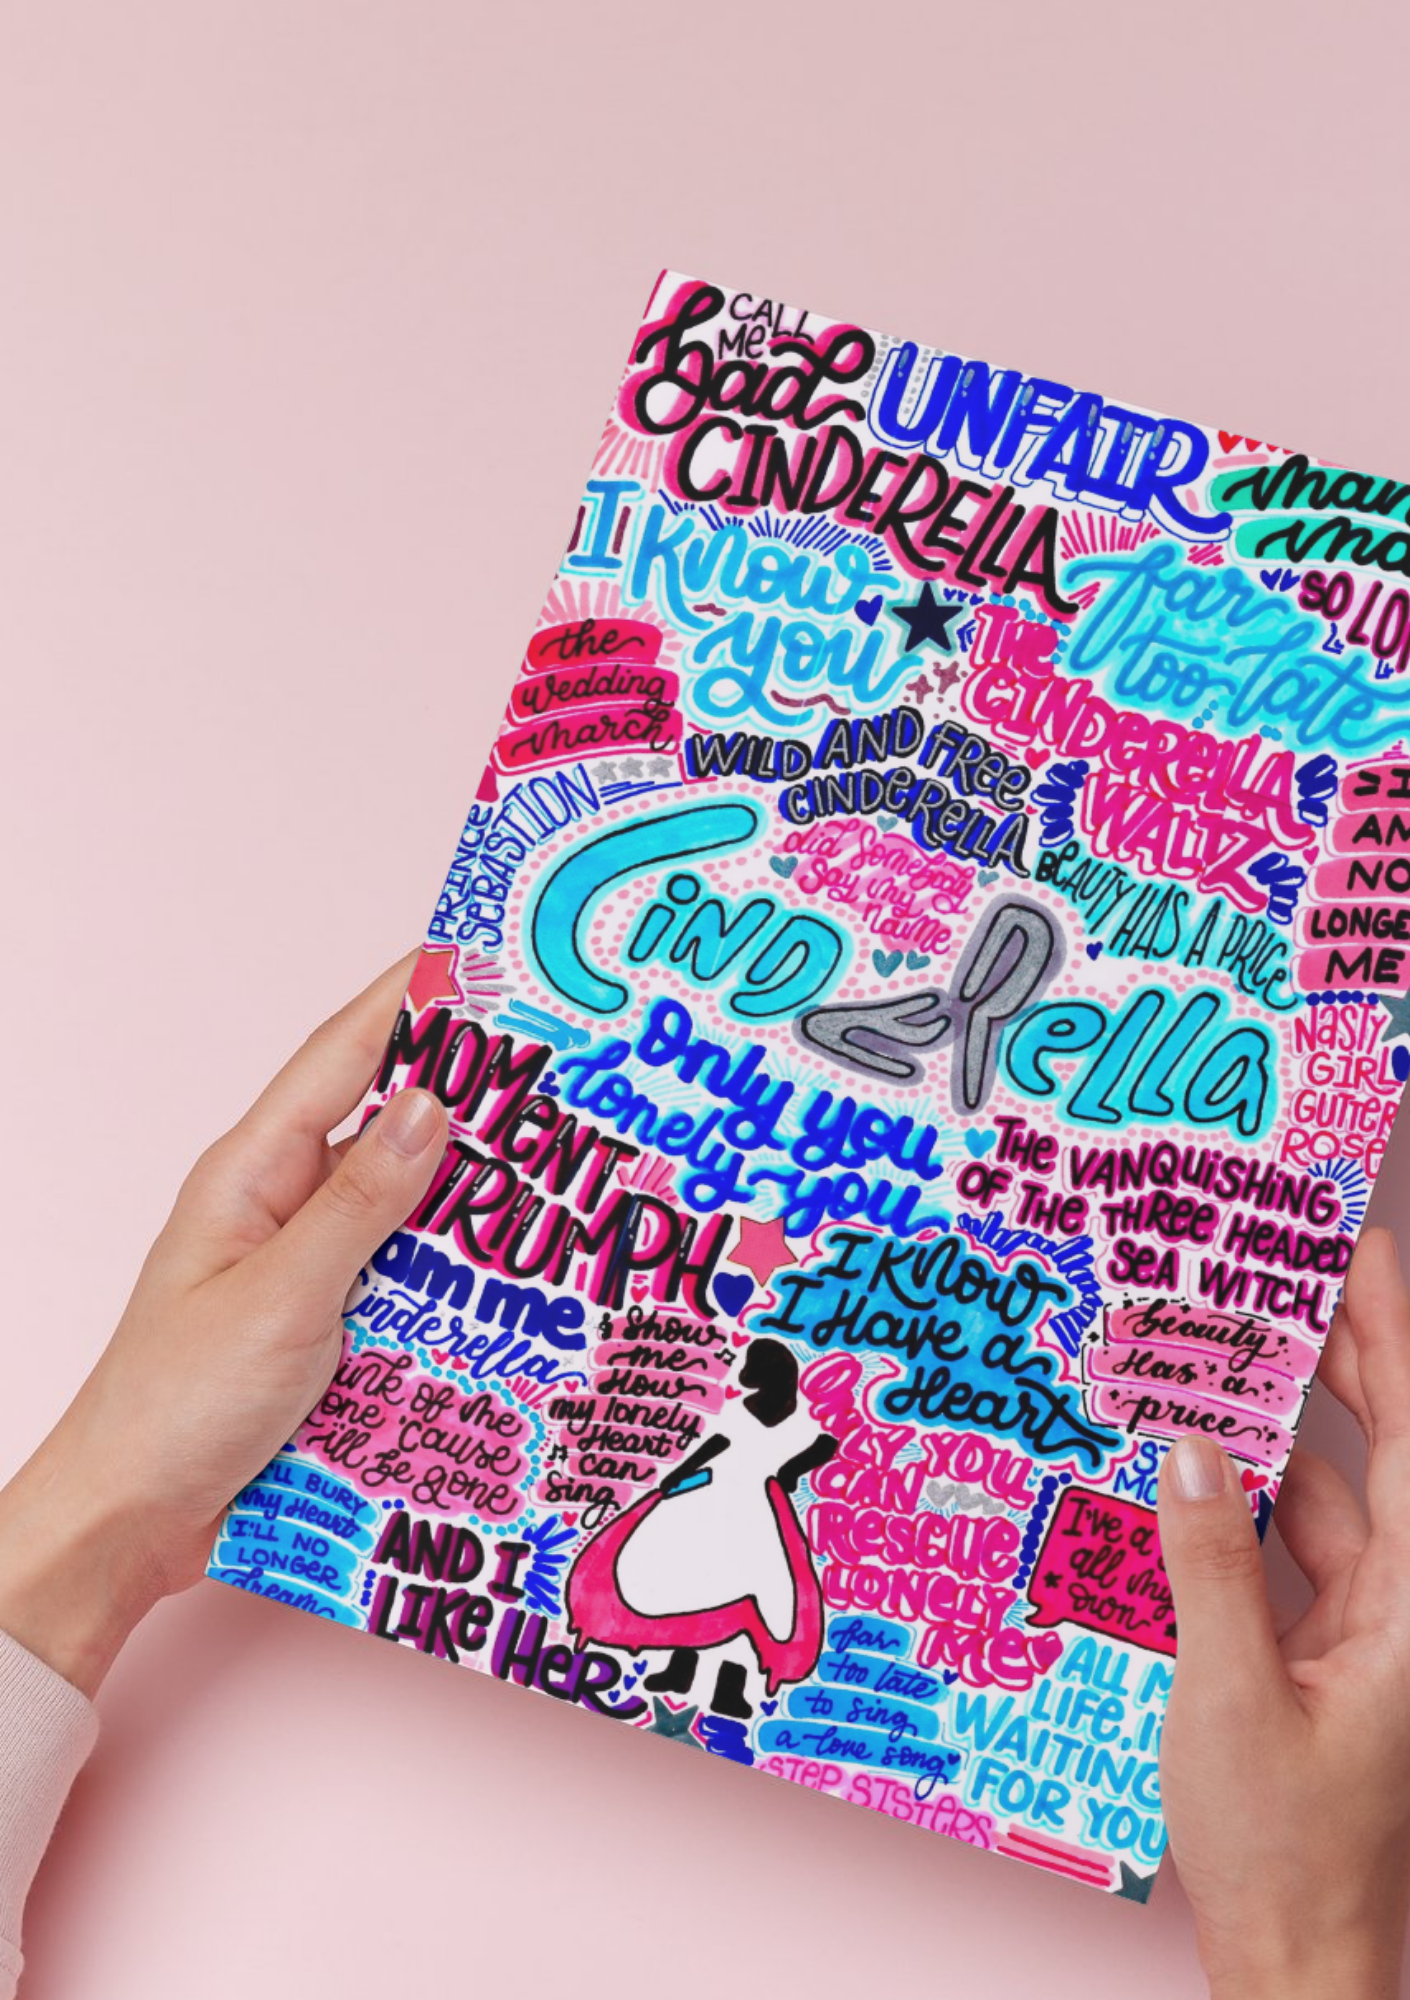 CALL
ME
bad
CINDERELLA
UNFAIR
SO
I Know
you
far
too late
the
wedding
march
THE
CINDERELLA
WALTZ
WILD AND FREE
CINDERELLA
I
AM
NO
ME
PRINCE
SEBASTION
did somebody
say my
name
BEAUTY HAS A PRICE
CINDeRella
NASTY
GIRL
GUTTER
MOMENT
TRIUMPH
Only you
lonely you
THE VANQUISHING
OF THE THREE HEADED
SEA WITCH
am me
Cinderella
I Know
I Have a
Heart
beauty
Has a
price
Show
me
How
my lonely
Heart
can
sing
of me
'cause
ill be gone
ONLY YOU
CAN
RESCUE
LONELY
ME
I've a
all my
own
I'LL BURY
my Heart
I'LL NO
LONGER
dream
AND I
LIKE HER
far
too late
to sing
a love song
ALL
LIFE
WAITING
FOR YOU
STEP SISTERS